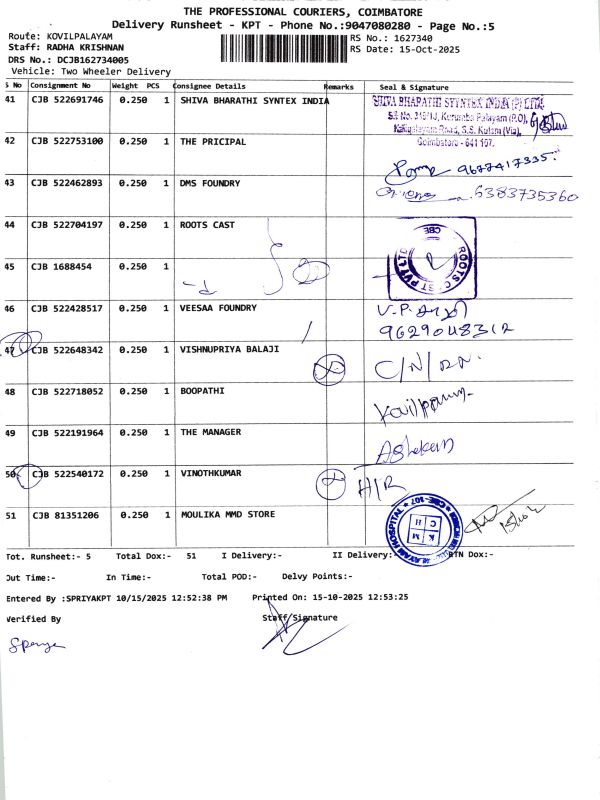 THE PROFESSIONAL COURIERS, COIMBATORE
Delivery Runsheet - KPT - Phone No.:9047080280 - Page No.:5
Route: KOVILPALAYAM
RS No.: 1627340
Staff: RADHA KRISHNAN
RS Date: 15-Oct-2025
DRS No.: DCJB162734005
Vehicle: Two Wheeler Delivery
S No Consignment No Weight PCS Consignee Details Remarks Seal & Signature
41 CJB 522691746 0.250 1 SHIVA BHARATHI SYNTEX INDIA
SHIVA BHARATHI SYNTEX INDIA (P) LTD.
Kurumba Palayam (P.O),
Road, S.S. Kulam (Via),
Coimbatore - 641 107.
42 CJB 522753100 0.250 1 THE PRICIPAL
9677417335
43 CJB 522462893 0.250 1 DMS FOUNDRY 6383735360
44 CJB 522704197 0.250 1 ROOTS CAST
ROOTS CAST PVT LTD
CBE
45 CJB 1688454 0.250 1
46 CJB 522428517 0.250 1 VEESAA FOUNDRY V.P.
9629048312
47 CJB 522648342 0.250 1 VISHNUPRIYA BALAJI C/N/
48 CJB 522718052 0.250 1 BOOPATHI
49 CJB 522191964 0.250 1 THE MANAGER
50 CJB 522540172 0.250 1 VINOTHKUMAR H/R
51 CJB 81351206 0.250 1 MOULIKA MMD STORE
HOSPITAL
CBE-107
K M
C H
Tot. Runsheet:- 5 Total Dox:- 51 I Delivery:- II Delivery:- RTN Dox:-
Out Time:- In Time:- Total POD:- Delvy Points:-
Entered By :SPRIYAKPT 10/15/2025 12:52:38 PM Printed On: 15-10-2025 12:53:25
Verified By Staff/Signature